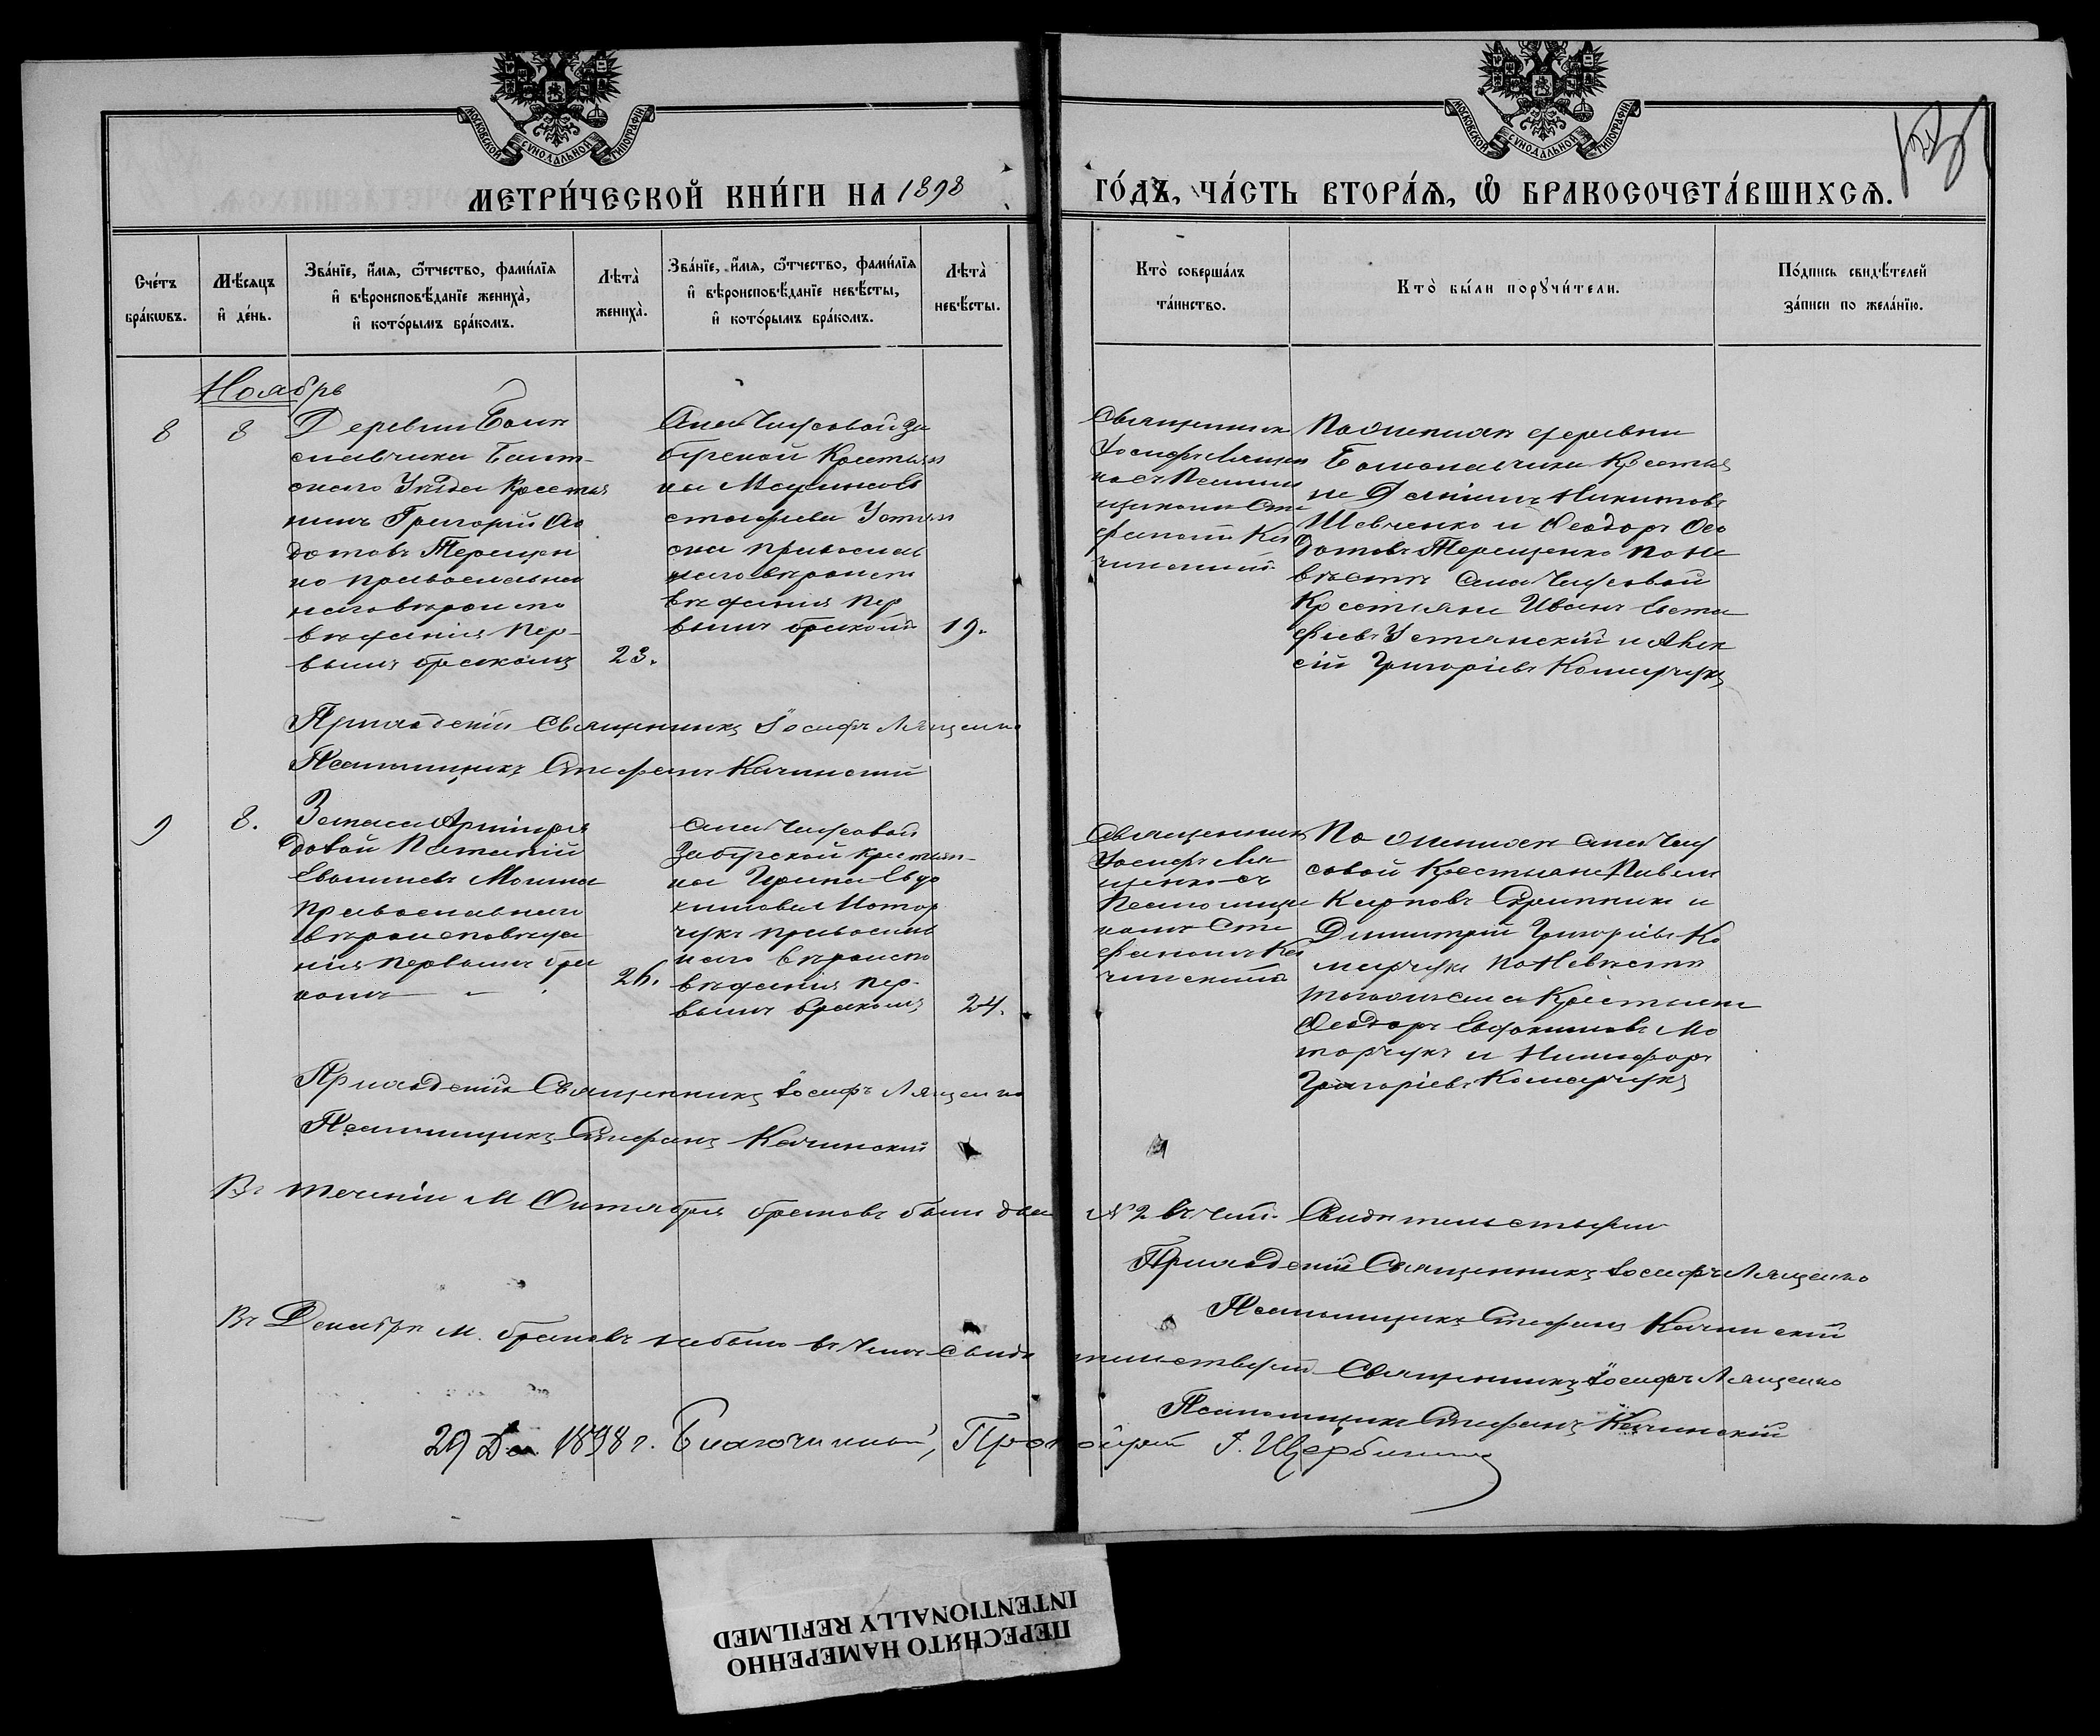 МОСКОВСКОЙ СѴНОДАЛЬНОЙ ТИПОГРАФІИ
МОСКОВСКОЙ СѴНОДАЛЬНОЙ ТИПОГРАФІИ
МЕТРИ́ЧЕСКОЙ КНИ́ГИ НА 1898
ГО́ДЪ, ЧА́СТЬ ВТОРА́Ѧ, Ѿ БРАКОСОЧЕТА́ВШИХСѦ.
Сче́тъ бра́кѡвъ.
Мѣ́сяцъ и҆ де́нь.
Зва́нїе, и҆́мя, ѻ҆́тчество, фами́лїя
и҆ вѣроисповѣ́данїе жениха̀,
и҆ кото́рымъ бра́комъ.
Лѣта̀ жениха̀.
Зва́нїе, и҆́мя, ѻ҆́тчество, фами́лїя
и҆ вѣроисповѣ́данїе невѣ́сты,
и҆ кото́рымъ бра́комъ.
Лѣта̀ невѣ́сты.
Кто̀ соверша́лъ
та́инство.
Кто̀ бы́ли порꙋчи́тели.
По́дпись свидѣ́телей
за́писи по жела́нїю.
Ноябрь
8
8
Деревни
Балт-
скаго Уѣзда Крестья
нинъ Григорій Ѳео
дотовъ Терещен
ко православна
го вѣроиспо
вѣданія пер-
вымъ бракомъ
23.
Крестьян
ка
стафіева Устян
ская православ
наго вѣроиспо
вѣданія пер
вымъ бракомъ
19.
Священникъ
Іосифъ Лящен
ко съ Псалом
щикомъ Сте
фаномъ Ка
чинскимъ
По женихѣ деревни
Крестья
не Даніилъ Никитовъ
Шевченко и Ѳеодоръ Ѳео
дотовъ Терещенко по не
вѣстѣ
Крестьяне Иванъ Евста
фіевъ Устянскій и Алек
сій Григоріевъ Комарчукъ
Приходскій Священникъ Іосифъ Лященко
Псаломщикъ Стефанъ Качинскій
9
8.
Запаса Арміи ря
довой
православнаго
вѣроисповѣда
нія первымъ бра
комъ
26.
крестьян-
ка Ирина Евдо
кимова Мотор
чукъ православ
наго вѣроиспо
вѣданія пер-
вымъ бракомъ
24.
Священникъ
Іосифъ Ля
щенко съ
Псаломщи
комъ Сте
фаномъ Ка
чинскимъ
По женихѣ
Крестьяне Павелъ
Карповъ Скрипникъ и
Димитрій Григоріевъ Ко
марчукъ по невѣстѣ
тогожъ села Крестьяне
Ѳеодоръ Евдокимовъ Мо
торчукъ и Никифоръ
Григоріевъ Комарчукъ
Приходскій Священникъ Іосифъ Лященко
Псаломщикъ Стефанъ Качинскій
Въ теченіи М Октября браковъ было два № 2 въ чемъ Свидѣтельствуемъ
Приходскій Священникъ Іосифъ Лященко
Псаломщикъ Стефанъ Качинскій
Въ Декабрѣ м. браковъ небыло въ чемъ свидѣтельствуемъ Священникъ Іосифъ Лященко
Псаломщикъ Стефанъ Качинскій
29 Дек 1898 г. Благочинный, Протоіерей
ПЕРЕСНЯТО НАМЕРЕННО
INTENTIONALLY REFILMED